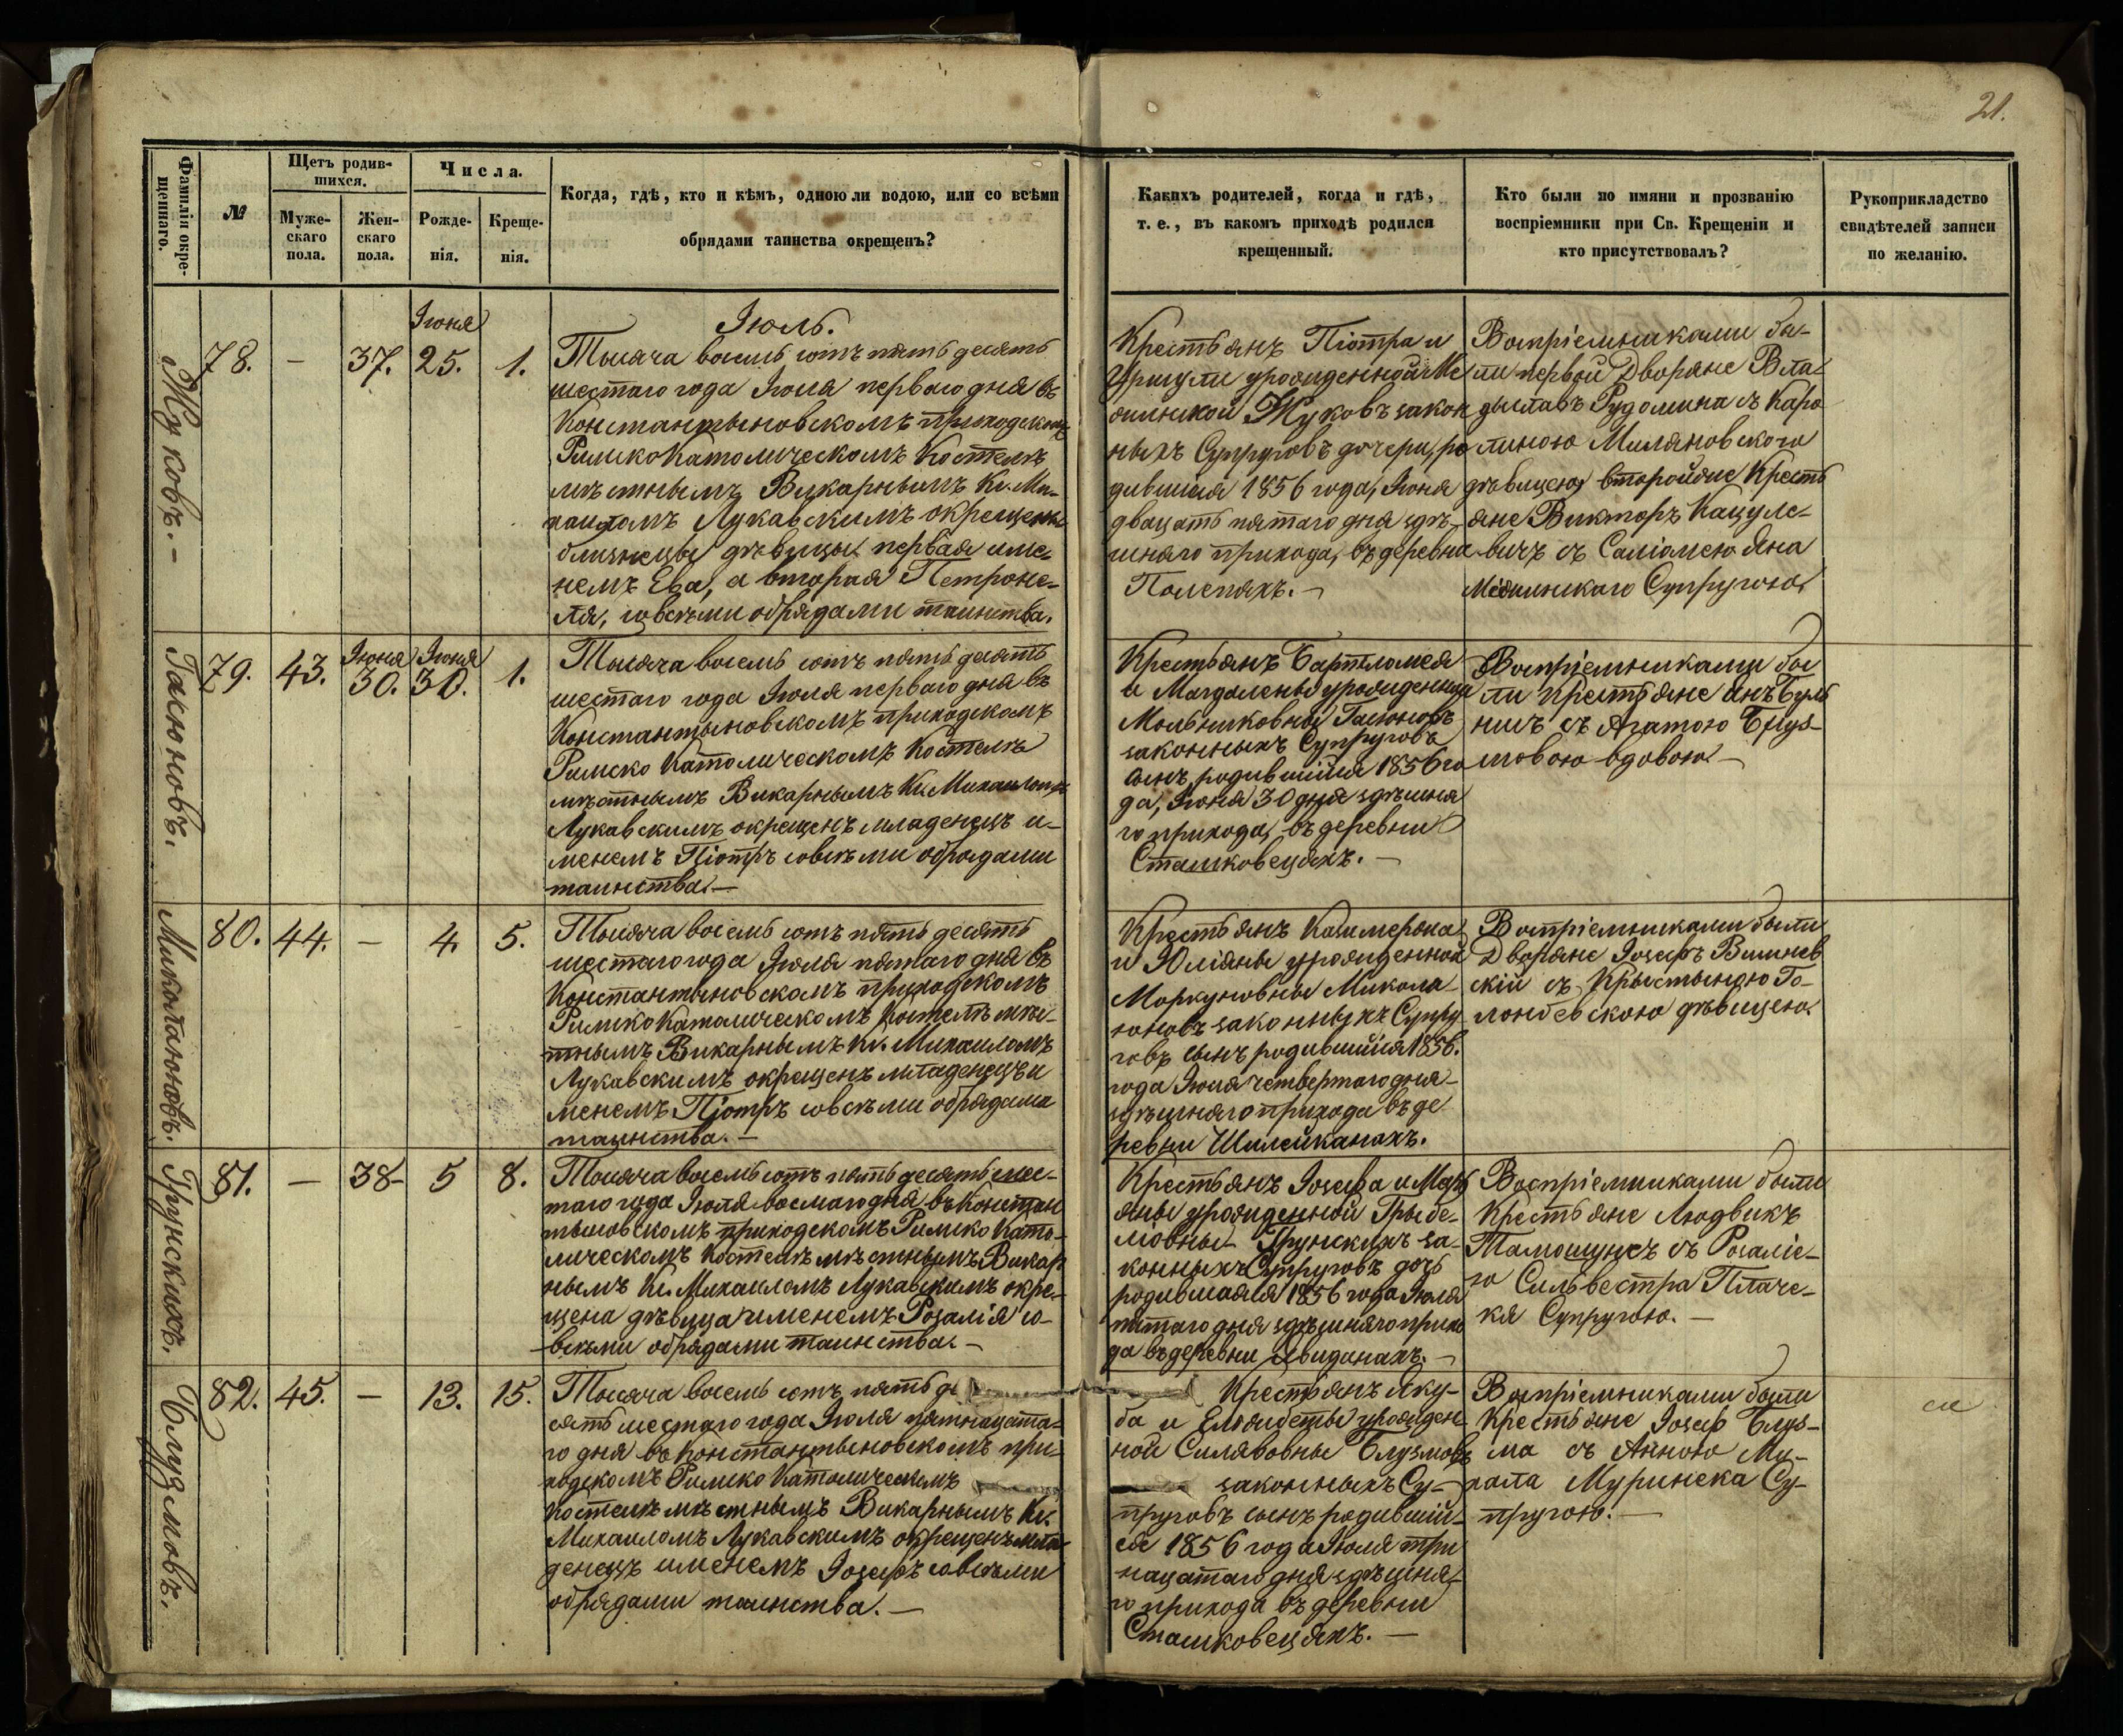 21.
Фамилія окре-
щеннаго.
№
Щетъ родив-
шихся.
Муже-
скаго
пола.
Жен-
скаго
пола.
Числа.
Рожде-
нія.
Креще-
нія.
Когда, гдѣ, кто и кѣмъ, одною ли водою, или со всѣми
обрядами таинства окрещенъ?
Какихъ родителей, когда и гдѣ,
т. е., въ какомъ приходѣ родился
крещенный.
Кто были по имяни и прозванію
воспріемники при Св. Крещеніи и
кто присутствовалъ?
Рукоприкладство
свидѣтелей записи
по желанію.
Жуковъ.-
78.
-
37.
Іюня
25.
1.
Іюль.
Тысяча восемь сотъ пять десять
шестаго года Іюля перваго дня въ
Константыновскомъ приходскомъ
Римско Католическомъ Костелѣ
мѣстнымъ Викарнымъ Кс. Ми-
хаиломъ Лукавскимъ окрещены
близнецы дѣвицы первая име-
немъ Ева, а вторая Петроне-
ля, совсѣми обрядами таинства.
Крестьянъ Піотра и
Уршули урожденной
Жуковъ закон
ныхъ Супруговъ дочери, ро
дившіяся 1856 года, Іюня
двацать пятаго дня здѣ-
шняго прихода, въ деревни
Полепяхъ.-
Воспріемниками бы-
ли первой Дворяне Вла-
дыславъ Рудомина съ Каро
линою Миляновского
дѣвицею, второй же Кресть
яне Викторъ Кацуле-
вичъ съ Саліомею Яна
Супругою
Гасюновъ.
79.
43.
Іюня
30.
Іюня
30.
1.
Тысяча восемь сотъ пять десять
шестаго года Іюля перваго дня въ
Константыновскомъ приходскомъ
Римско Католическомъ Костелѣ
мѣстнымъ Викарнымъ Кс. Михаиломъ
Лукавскимъ окрещенъ младенецъ и-
менемъ Піотръ совсѣми обрядами
таинства.-
Крестьянъ Бартломея
и Магдалены урожденной
Мольниковны Гасюновъ
законныхъ Супруговъ
сынъ, родившійся 1856 го
да, Іюня 30 дня здѣшня
го прихода, въ деревни
Сташковецяхъ.-
Воспріемниками бы
ли Крестьяне Янъ
съ Агатою Блуз-
мовою вдовою-
Миколаюновъ.
80.
44.
-
4.
5.
Тысяча восемь сотъ пять десять
шестаго года Іюля пятаго дня въ
Константыновскомъ приходскомъ
Римско Католическомъ Костелѣ мѣс-
тнымъ Викарнымъ Кс. Михаиломъ
Лукавскимъ окрещенъ младенецъ и
менемъ Піотръ совсѣми обрядами
таинства.-
Крестьянъ Казимержа
и Юліяны урожденной
Моркуновны Микола-
юновъ законныхъ Супру
говъ сынъ родившійся 1856.
года Іюля четвертаго дня-
здѣшняго прихода въ де
ревни Шилейканахъ.
Воспріемниками были
Дворяне Іозефъ Вишнев
скій съ Крыстыною Го-
ломбевскою дѣвицею.
Грунскихъ.
81.
-
38-
5
8.
Тысяча восемь сотъ пять десять шес-
таго года Іюля восмаго дня, въ Констан
тыновскомъ приходскомъ Римско Като-
лическомъ Костелѣ мѣстнымъ Викар
нымъ Кс. Михаиломъ Лукавскимъ окре-
щена дѣвица именемъ Розалія со-
всѣми обрядами таинства.-
Крестьянъ Іозефа и Мары
яны урожденной Грыбе-
ловны Грунскихъ за-
конныхъ Супруговъ дочь
родившаяся 1856 года Іюля
пятаго дня здѣшняго прихо
да въ деревни Явиданахъ.-
Воспріемниками были
Крестьяне Людвикъ
Тамошунсъ съ Розаліе-
ю Сильвестра Плаче-
ня Супругою.-
Блузмовъ.
82.
45.
-
13.
15.
Тысяча восемь сотъ пять де
сять шестаго года Іюля пятнацата-
го дня въ Константыновскомъ при-
ходскомъ Римско Католическомъ
Костелѣ мѣстнымъ Викарнымъ Кс.
Михаиломъ Лукавскимъ окрещенъ мла
денецъ именемъ Іозефъ совсѣми
обрядами таинства.-
Крестьянъ Яку-
ба и Ельжбеты урожден-
ной Силявовны Блузмовъ
законныхъ Су-
пруговъ сынъ родившій-
ся 1856 года Іюля три
нацатаго дня здѣшня-
го прихода въ деревни
Сташковецяхъ.-
Воспріемниками были
Крестьяне Іозеф Блуз-
ма съ Анною Ми-
хала Муринска Су-
пругою.-